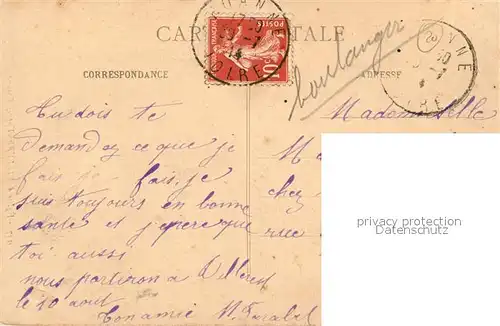 CARTE POSTALE
ROANNE
LOIRE
POSTES
10
boulanger
CORRESPONDANCE
ADRESSE
Tu dois te
demandez ce que je
fais je
suis toujours en bonne
santé et j'espère que
toi aussi
nous partirons a
le 10 août
Ton amie M.
Mademoiselle
M
chez
rue
privacy protection
Datenschutz